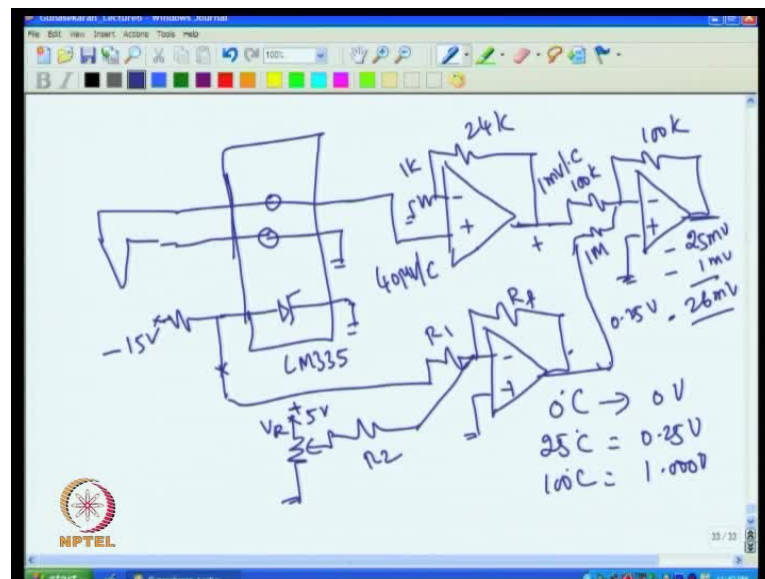 Gunasekaran_Lecture6 - Windows Journal
File Edit View Insert Actions Tools Help
100%
B I
24K
100K
1K
1mV/°C
100K
-
+
-
+
+
40μV/°C
1M
- 25mV
- 1mV
0.25V
- 26mV
-15V
LM335
R1
Rf
-
+
+
VR 5V
R2
0°C → 0V
25°C = 0.25V
100°C = 1.000V
NPTEL
33 / 33
start